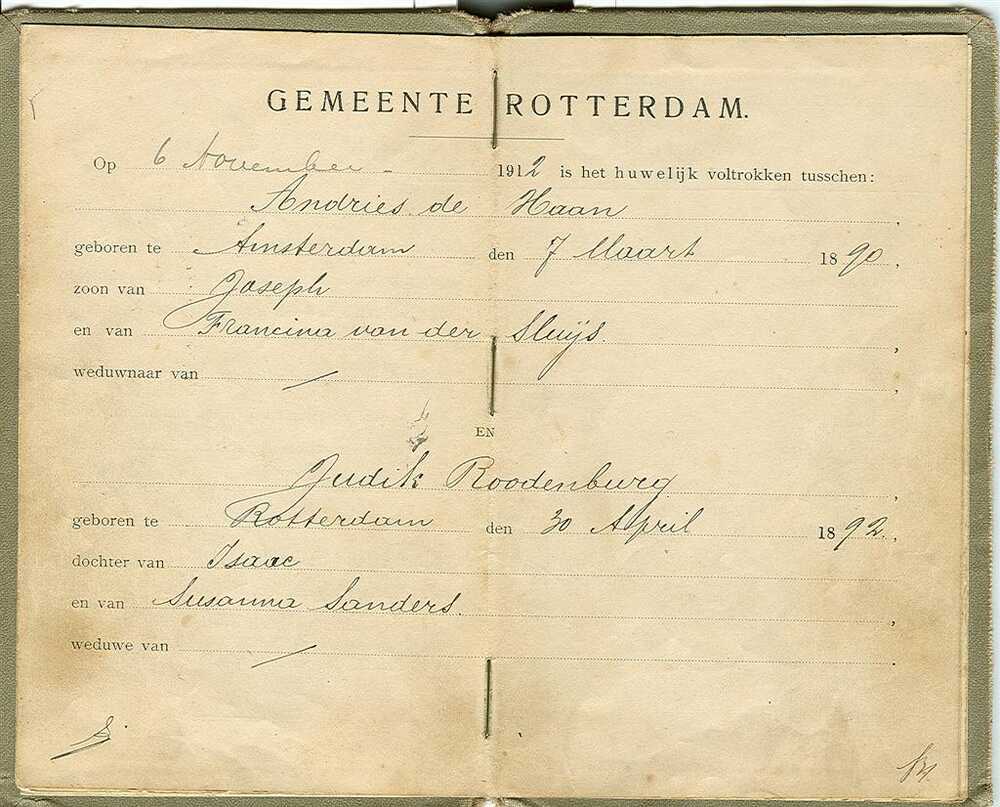 GEMEENTE ROTTERDAM.
Op 6 November 1912 is het huwelijk voltrokken tusschen:
Andries de Haan,
geboren te Amsterdam den 7 Maart 1890,
zoon van Joseph
en van Francina van der Sluijs.,
weduwnaar van /,
EN
Judik Roodenburg,
geboren te Rotterdam den 30 April 1892.,
dochter van Isaac
en van Susanna Sanders.,
weduwe van /.